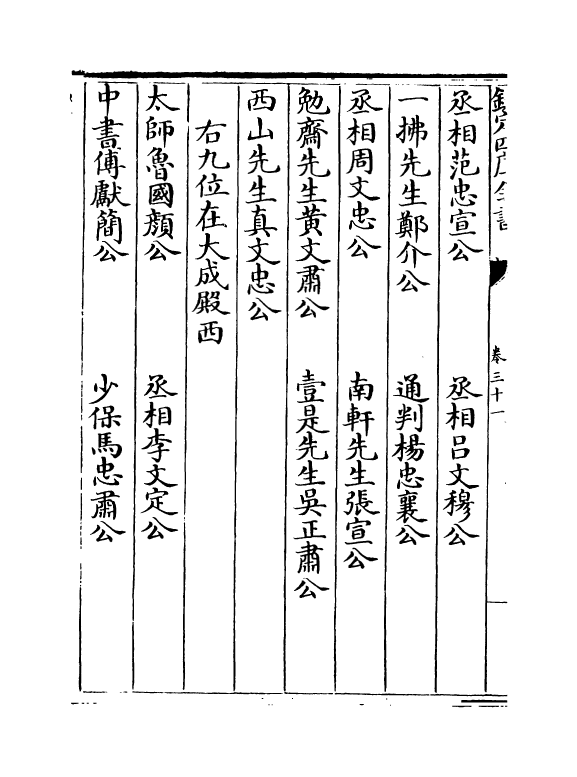 欽定四庫全書
卷三十一
丞相范忠宣公　丞相吕文穆公
一拂先生鄭介公　通判楊忠襄公
丞相周文忠公　南軒先生張宣公
勉齋先生黄文肅公　壹是先生吳正肅公
西山先生真文忠公
右九位在大成殿西
太師魯國顔公　丞相李文定公
中書傅獻簡公　少保馬忠肅公